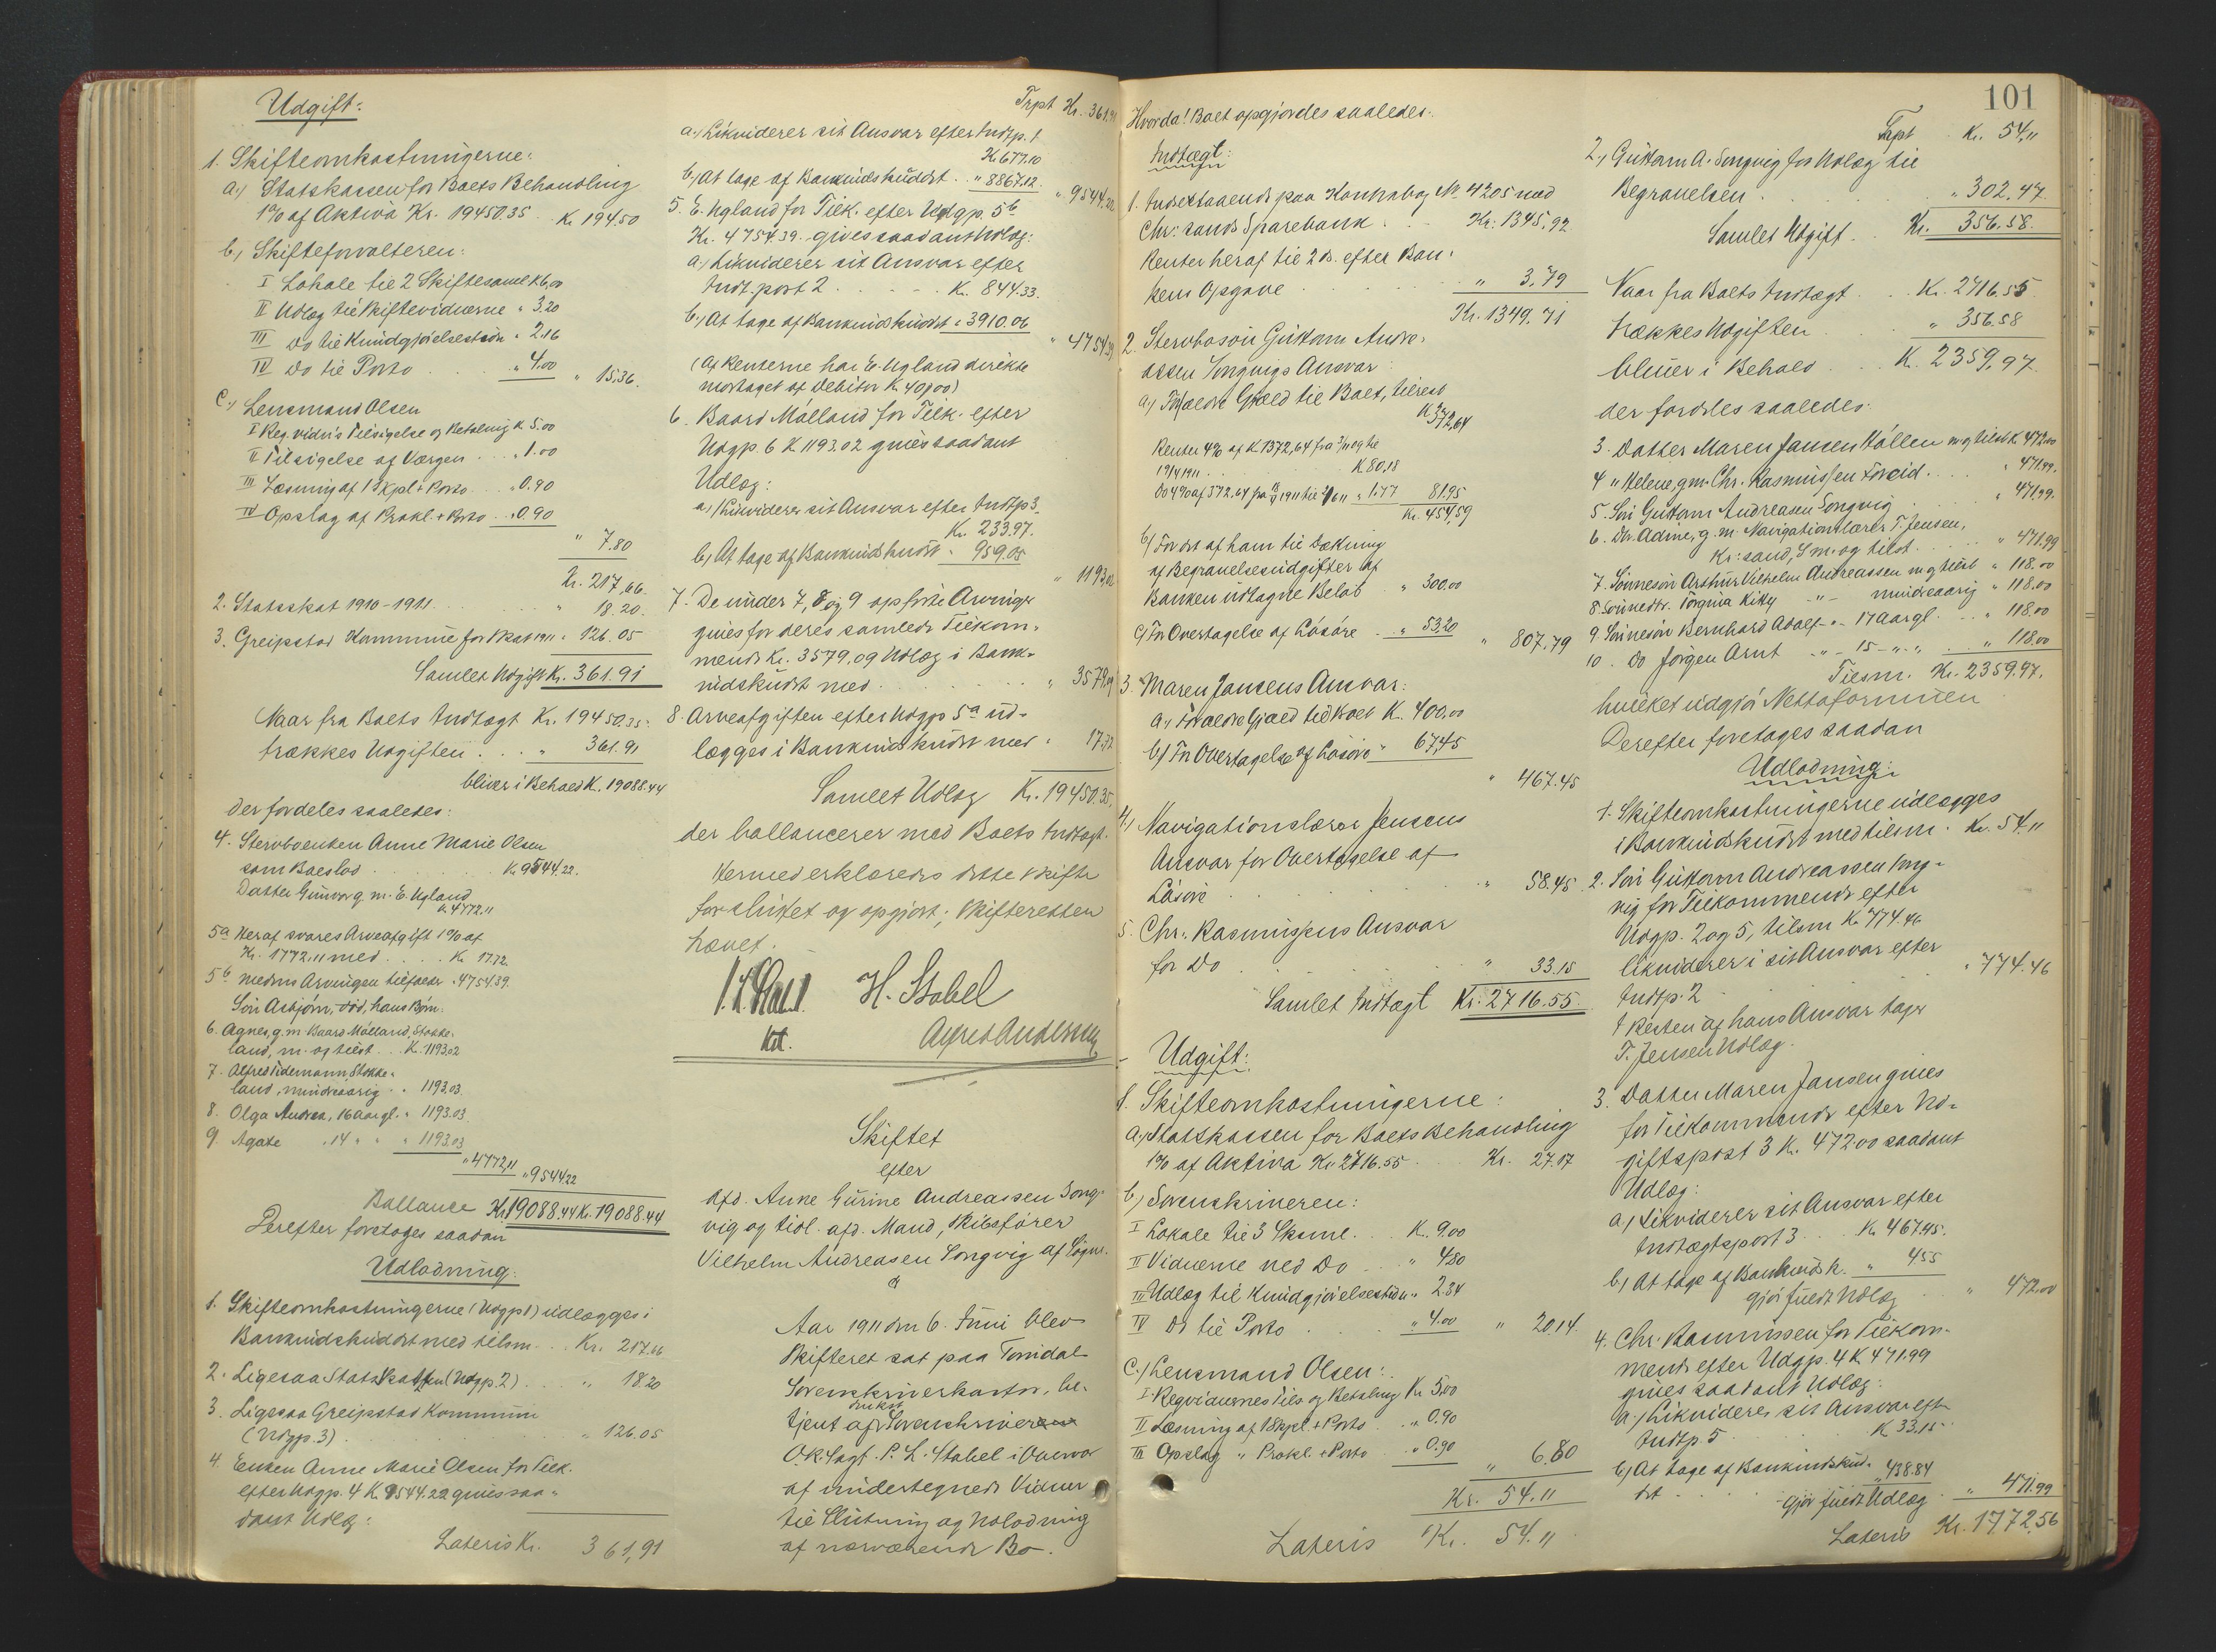 Udgift:
1. Skifteomkostningerne:
a) Statskassen for Boets Behandling
1% af Aktiva Kr. 19450.35 . . K. 194.50
b) Skifteforvalteren:
I Lokale til 2 Skiftesaml K 6,00
II Udlæg til Skiftevidnerne " 3.20
III Do til Kundgjørelsestidn " 2.16
IV Do til Porto . . " 4.00
" 15.36.
c) Lensmand Olsen
I Reg. vidn's Tilsigelse og Betaling K 5.00
II Tilsigelse af Værgen . . " 1.00
III Læsning af 1 Skpl + Porto . . " 0.90
IV Opslag af Prokl. + Porto . . " 0.90
" 7.80
Kr. 217,66.
2. Statsskat 1910-1911 . . . " 18.20.
3. Greipstad Kommune for Skat 1911 " 126.05
Samlet Udgift Kr. 361.91
Naar fra Boets Indtægt Kr. 19450.35.
trækkes Udgiften . . . " 361.91
bliver i Behold K. 19088.44
der fordeles saaledes:
4. Stervboenken Anne Marie Olsen
som Boeslod . . . K. 9544.22.
Datter Gunvor g. m. E. Ugland
K. 4772,11
5a Heraf svares Arveafgift 1% af
Kr. 1772.11 med . . . . K. 17.72
5b medens Arvingen tilfalder " 4754.39.
Søn Asbjørn, død, hans Børn:
6. Agnes, g. m. Baard Mølland, Stokke-
land, m. og tilst . . . K. 1193.02
7. Alfred Tidemann Stokke-
land, mindreaarig . . " 1193.03.
8. Olga Andrea, 16 aar gl. " 1193.03.
9. Agate " 14 " " " 1193.03
" 4772,11
" 9544.22
Ballance Kr. 19088.44 Kr. 19088.44
Derefter foretages saadan
Udlodning:
1. Skifteomkostningerne (Udgp 1) udlægges i
Bankindskuddet med tilsm . . . Kr. 217.66
2. Ligesaa Statsskatten (Udgp. 2) . . . " 18.20
3. Ligesaa Greipstad Kommune
(Udgp. 3) . . . " 126.05
4. Enken Anne Marie Olsen for Tilk.
efter Udgp. 4 K. 9544.22 gives saa-
dant Udlæg:
Lateris Kr. 361,91
Trpt Kr. 361.91
a) Likviderer sit Ansvar efter Indtp. 1
K 677.10
b) At tage af Bankindskuddet . . " 8867.12.
" 9544.22
5. E. Ugland for Tilk. efter Udgp. 5b
Kr. 4754.39. gives saadant Udlæg:
a) Likviderer sit Ansvar efter
Indt. post 2 . . . . K. 844.33.
b) At tage af Bankindskuddet " 3910.06
" 4754.39
(Af Renterne har E. Ugland direkte
modtaget af Debitor K. 40,00)
6. Baard Mølland for Tilk. efter
Udgp. 6 K 1193.02 gives saadant
Udlæg:
a) Likviderer sit Ansvar efter Indtp 3.
Kr. 233.97.
b) At tage af Bankindskuddt " 959.05
" 1193.02
7. De under 7, 8 og 9 opførte Arvinger
gives for deres samlede Tilkom-
mende Kr. 3579,09 Udlæg i Bank-
indskuddt med . . . " 3579,09
8. Arveafgiften efter Udgp 5a ud-
lægges i Bankindskuddet med " 17.72
Samlet Udlæg Kr. 19450.35.
der ballancerer med Boets Indtægt.
Hermed erklæredes dette Skifte
forsluttet og opgjort; Skifteretten
hævet.
H. Stabel
kst. Alfred Andersen
Skiftet
efter
afd. Anne Gurine Andreassen Song-
vig og tidl. afd. Mand, Skibsfører
Vilhelm Andreasen Songvig af Søgne.
Aar 1911 den 6. Juni blev
Skifteret sat paa Torridal
Sorenskriverkontor, be-
tjent af Sorenskriveren
O.R.Sagf. P. L. Stabel i Overvær
af undertegnede Vidner
til Slutning og Udlodning
af nærværende Bo.
101
Hvorda! Boet opgjordes saaledes:
Indtægt:
1. Indestaaende paa Kontrabog No 4205 med
Chr:sands Sparebank . . Kr. 1345,92
Renter heraf til 2 ds. efter Ban-
kens Opgave . . . " 3,79
Kr. 1349,71
2. Stervbosøn Guttorm Andre-
assen Songvigs Ansvar:
a) Forfalden Gjæld til Boet, tilrest
K 372,64
Renter 4% af K 1372,64 fra
19/4 1911 . . . K 80,18
" 1.77 81.95
Kr. 454,59
b) For det af ham til Dækning
af Begravelsesudgifter af
Banken udtagne Beløb . " 300,00
c) For Overtagelse af Løsøre . . " 53,20
" 807,79
3. Maren Jansens Ansvar:
a) Forfalden Gjæld til Boet K. 400,00
b) For Overtagelse af Løsøre " 67,45
" 467.45
4. Navigationslærer Jensens
Ansvar for Overtagelse af
Løsøre . . . " 58.45
5. Chr. Rasmussens Ansvar
for Do . . . " 33.15
Samlet Indtægt Kr. 2716.55.
Udgift:
1. Skifteomkostningerne:
a) Statskassen for Boets Behandling
1% af Aktiva Kr. 2716.55 . . Kr. 27.17
b) Sorenskriveren:
I Lokale til 3 Sksml. . . K. 9.00
II Vidnerne ved Do . . . " 4.80
III Udlæg til Kundgjørelsestidn " 2.34
IV Do til Porto . . . " 4.00
" 20.14.
c) Lensmand Olsen:
I Regvidnernes Tils og Betaling Kr 5,00
II Læsning af 1 Skpl. + Porto . . " 0.90
III Opslag " Prokl. + Porto . . " 0.90
" 6.80
Kr. 54.11
Lateris Kr. 54.11
Trpt Kr. 54,11
2. Guttorm A. Songvig for Udlæg til
Begravelsen . . . " 302,47.
Samlet Udgift . . Kr. 356.58.
Naar fra Boets Indtægt . . K. 2716.55
trækkes Udgiften . . . " 356.58
bliver i Behold . . . K. 2359,97.
der fordeles saaledes:
3. Datter Maren Jansen Høllen m og tilst K. 472.00
4 " Helene, gm. Chr. Rasmussen . . . " 471.99.
5. Søn Guttorm Andreasen Songvig . . . " 471.99.
6. Dtr. Adine, g. m. Navigationslærer T. Jensen,
Kr:sand, S m. og tilst . . . " 471.99
7. Sønnesøn Arthur Vilhelm Andreassen m og tilst " 118.00
8. Sønnedtr. Jørgina Kitty " " mindreaarig " 118.00
9. Sønnesøn Bernhard Adolf " " 17 aar gl. . . " 118.00
10. Do Jørgen Arnt " " 15 " " . . " 118.00
Tilsm. Kr. 2359.97.
hvilket udgjør Nettoformuen
Derefter foretages saadan
Udlodning:
1. Skifteomkostningerne udlægges
i Bankindskuddt med tilsm. Kr. 54.11
2. Søn Guttorm Andreassen Song-
vig for Tilkommende efter
Udgp. 2 og 5, tilsm K. 774.46
likviderer i sit Ansvar efter
Indtp. 2 . . . " 774.46
Resten af hans Ansvar tager
T. Jensen Udlæg.
3. Datter Maren Jansen gives
for Tilkommende efter Ud-
giftspost 3 K. 472.00 saadant
Udlæg:
a) Likviderer sit Ansvar efter
Indtægtspost 3 . . . Kr. 467.45.
b) At tage af Bankindsk. " 4.55
gjør fuldt Udlæg . . " 472.00
4. Chr. Rasmussen for Tilkom-
mende efter Udgp. 4 K. 471.99
gives saadant Udlæg:
a) Likviderer sit Ansvar eft
Indtp. 5 . . . K 33.15
b) At tage af Bankindskud-
dt . . . " 438.84
gjør fuldt Udlæg . " 471.99
Lateris Kr. 1772,56